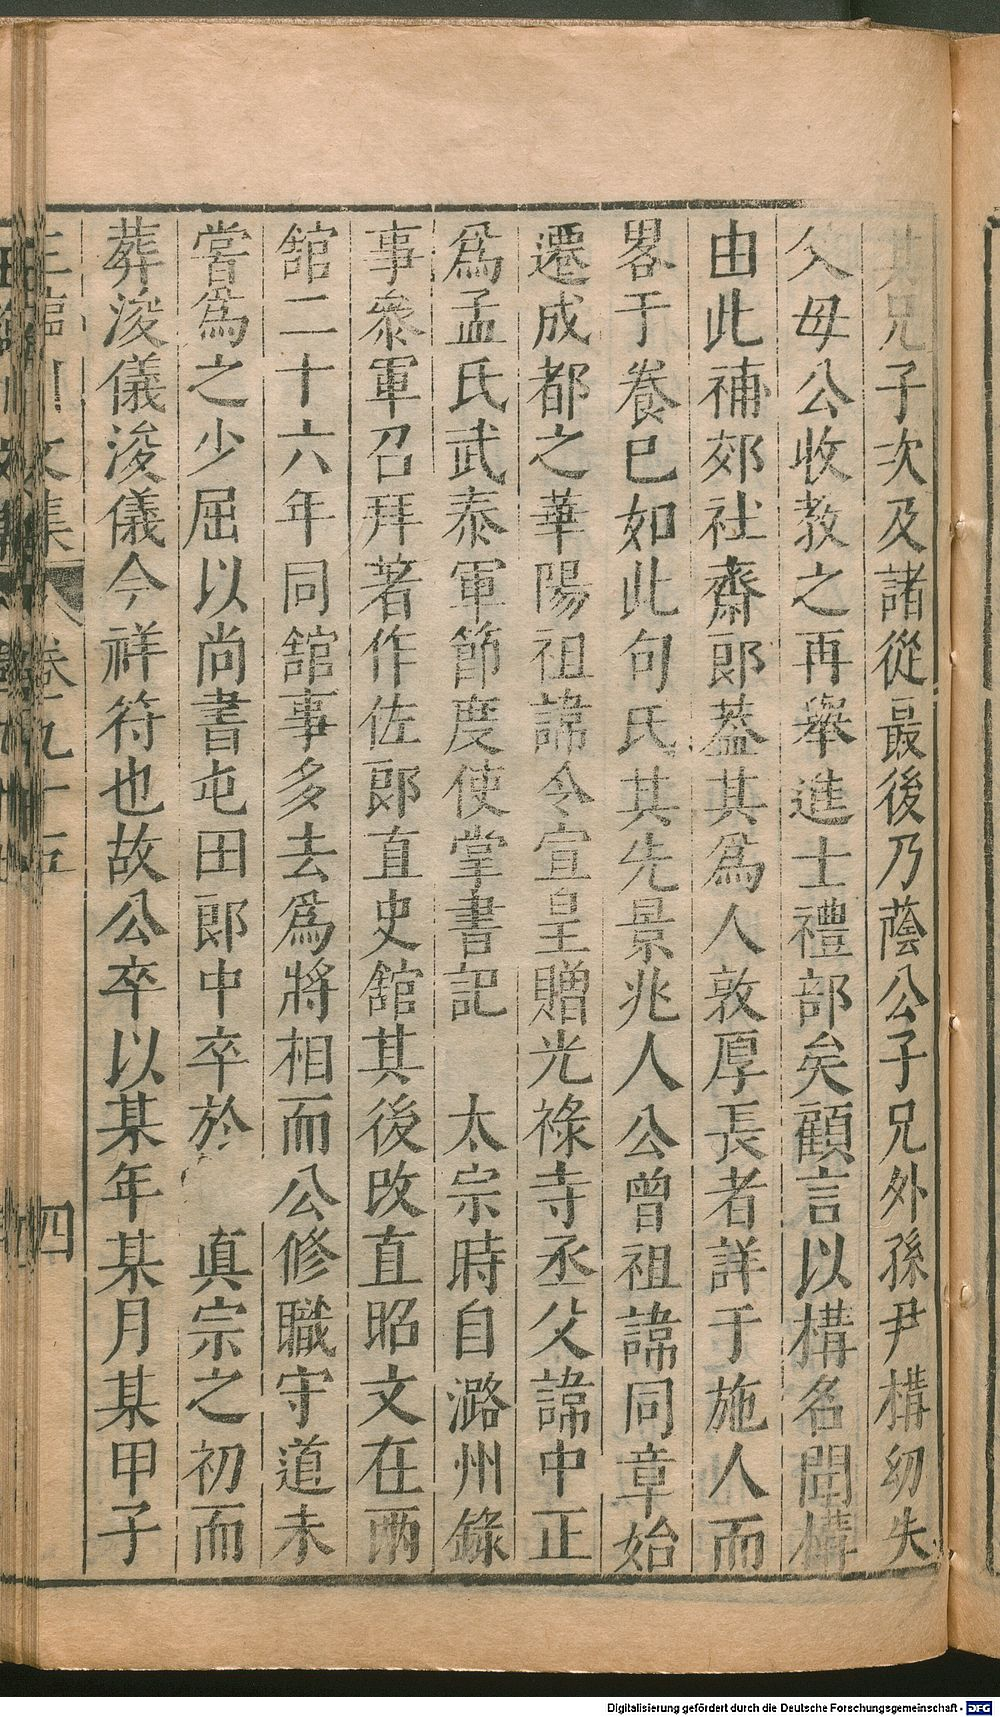 其兄子次及諸從最後乃蔭公子兄外孫尹構幼失
父母公收教之再舉進士禮部矣顧言以構名聞構
由此補郊社齋郎蓋其爲人敦厚長者詳于施人而
畧于養已如此句氏其先景兆人公曾祖諱同章始
遷成都之華陽祖諱令宣皇贈光祿寺丞父諱中正
爲孟氏武泰軍節度使掌書記　太宗時自潞州錄
事叅軍召拜著作佐郎直史館其後改直昭文在兩
館二十六年同舘事多去爲將相而公修職守道未
嘗爲之少屈以尚書屯田郎中卒於　真宗之初而
葬浚儀浚儀今祥符也故公卒以某年某月某甲子
王臨川文集　卷九十五　四
Digitalisierung gefördert durch die Deutsche Forschungsgemeinschaft - DFG